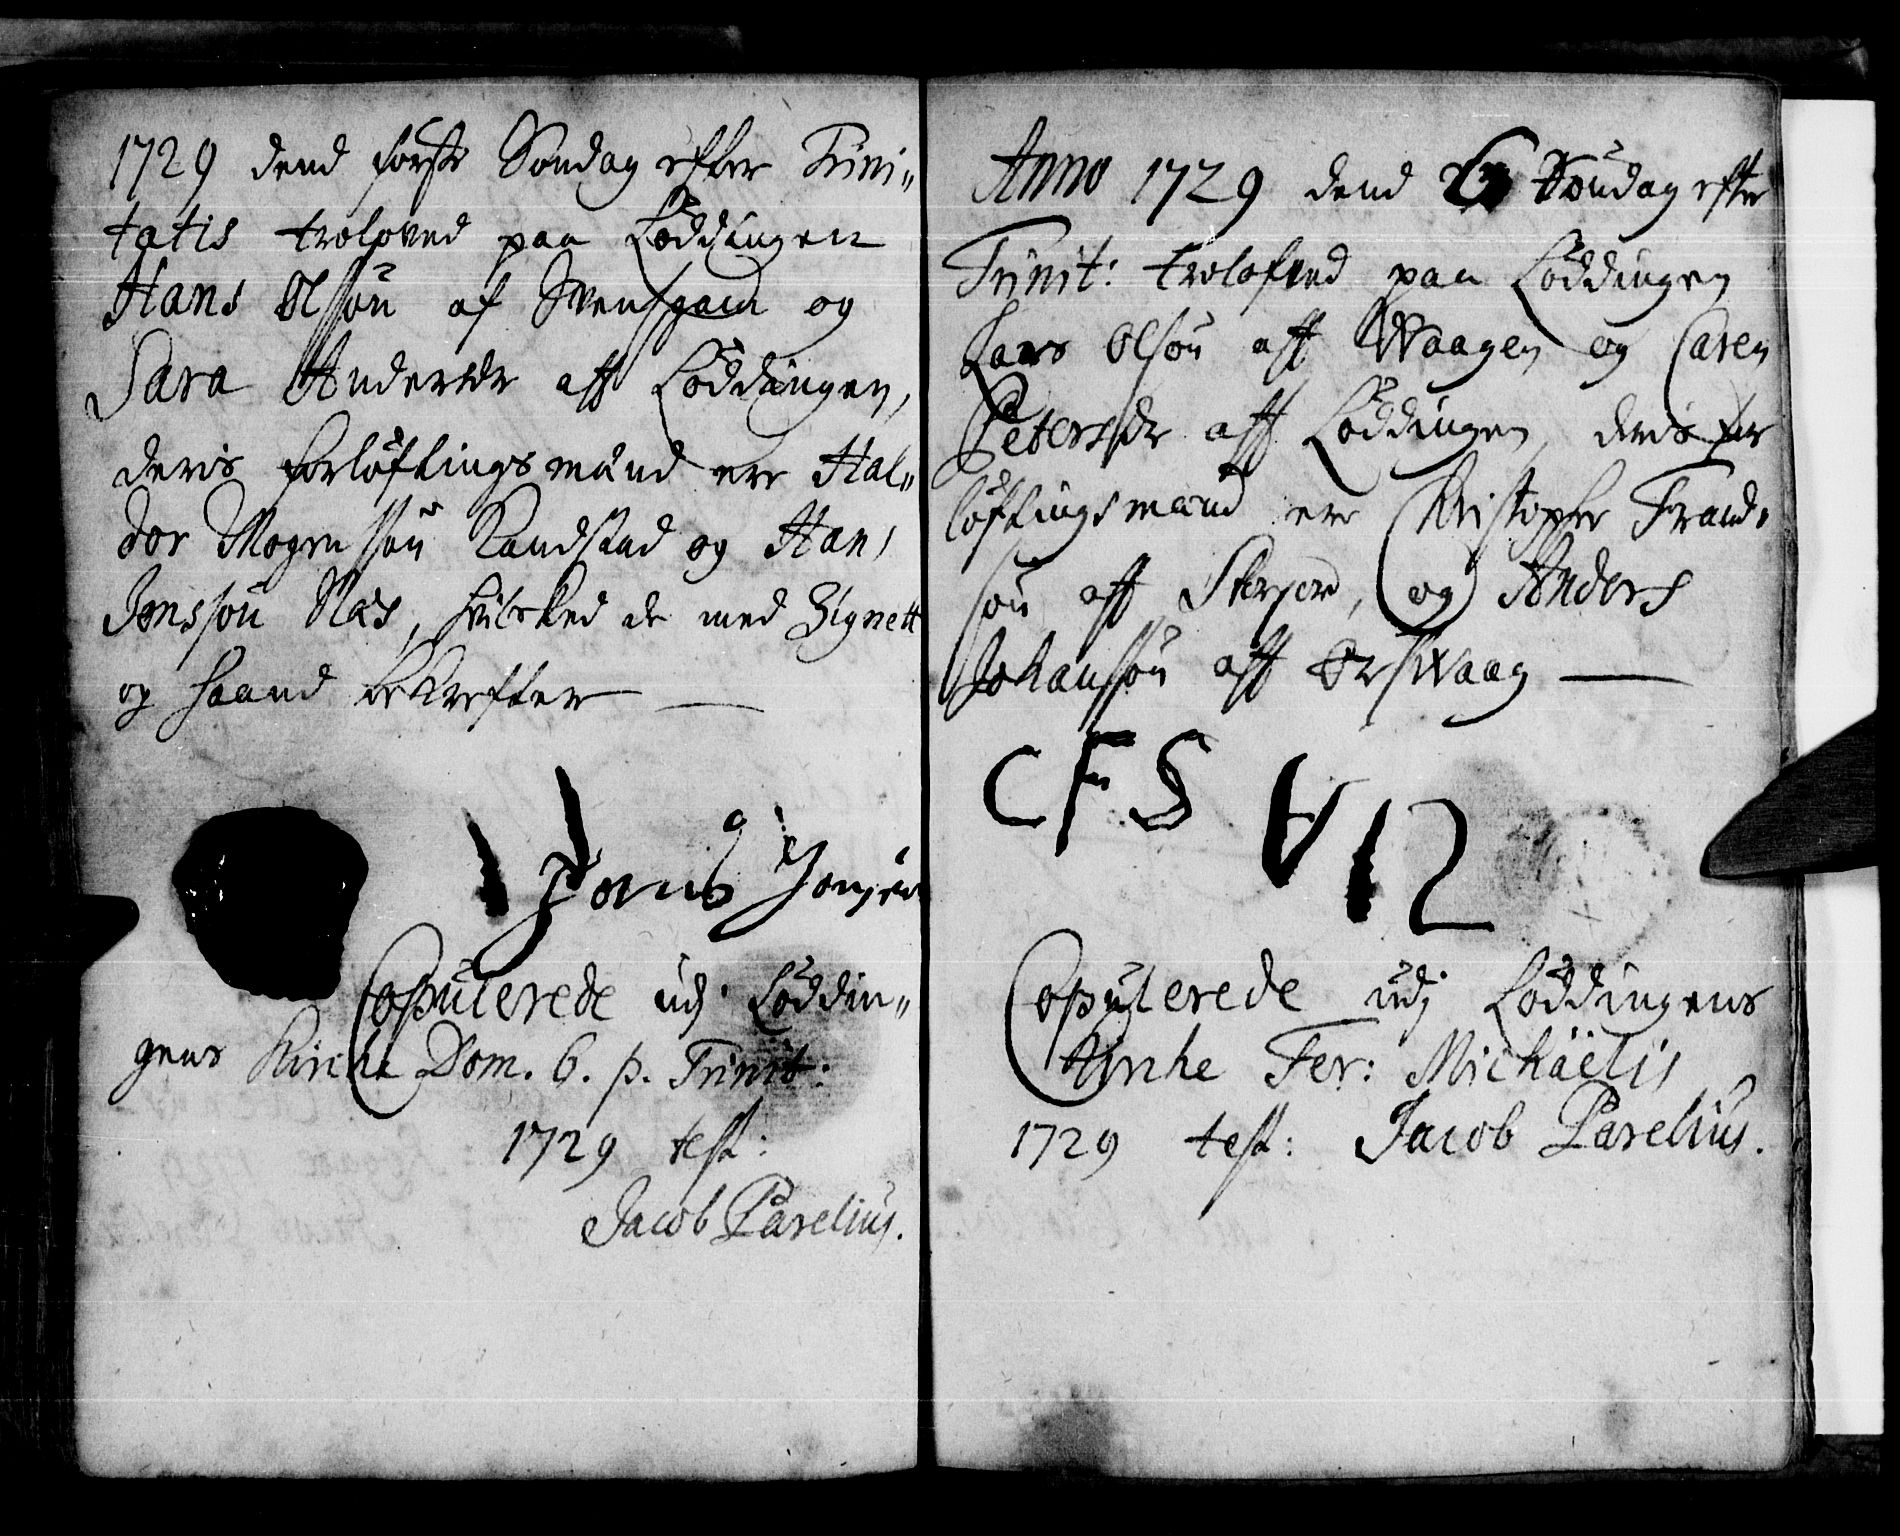 1729 dend første Søndag efter Trini„
tatis troloved paa Løddingen
Hans Olssøn af Svensgam og
Sara Andersdr aff Løddingen,
deris forløftingsmænd ere Hal„
dor Mogenssøn Randstad og Hans
Jonssøn Næs, hvilcked de med Zignett
og haand bekrefter —
Hans Jonsøn
Copulerede udj Løddin„
gens Kirche Dom. 6. p. Trinit:
1729 test:
Jacob Parelius.
Anno 1729 dend Søndag efter
Trinit: trolofved paa Løddingen
Lars Olsøn aff Waagen og Caren
Petersdr aff Løddingen, deris for
løftingsmænd ere Christopher Frand„
søn aff, og Anders
Johanssøn aff Ørswaag —
CFS A I S
Copulerede udj Løddingens
Kirche Fer: Michaëlis
1729 test: Jacob Parelius.